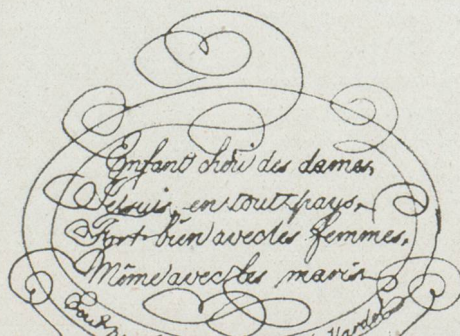 Enfant chéri des dames,
Je suis en tout pays,
Fort bien avec les femmes,
Même avec les maris